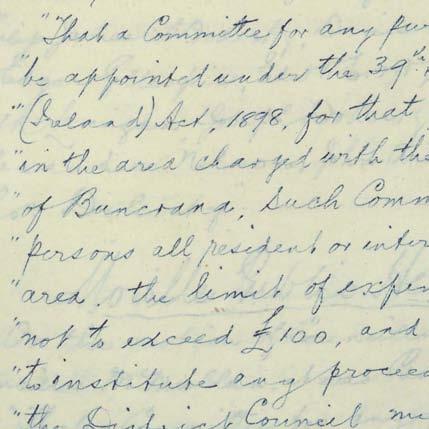 "That a Committee for any pur
"be appointed under the 39th
"(Ireland) Act, 1898, for that
"in the area charged with the
"of Buncrana, such Comm
"persons all resident or inter
"area, the limit of expen
"not to exceed £100, and
"to institute any proceed
"the District Council